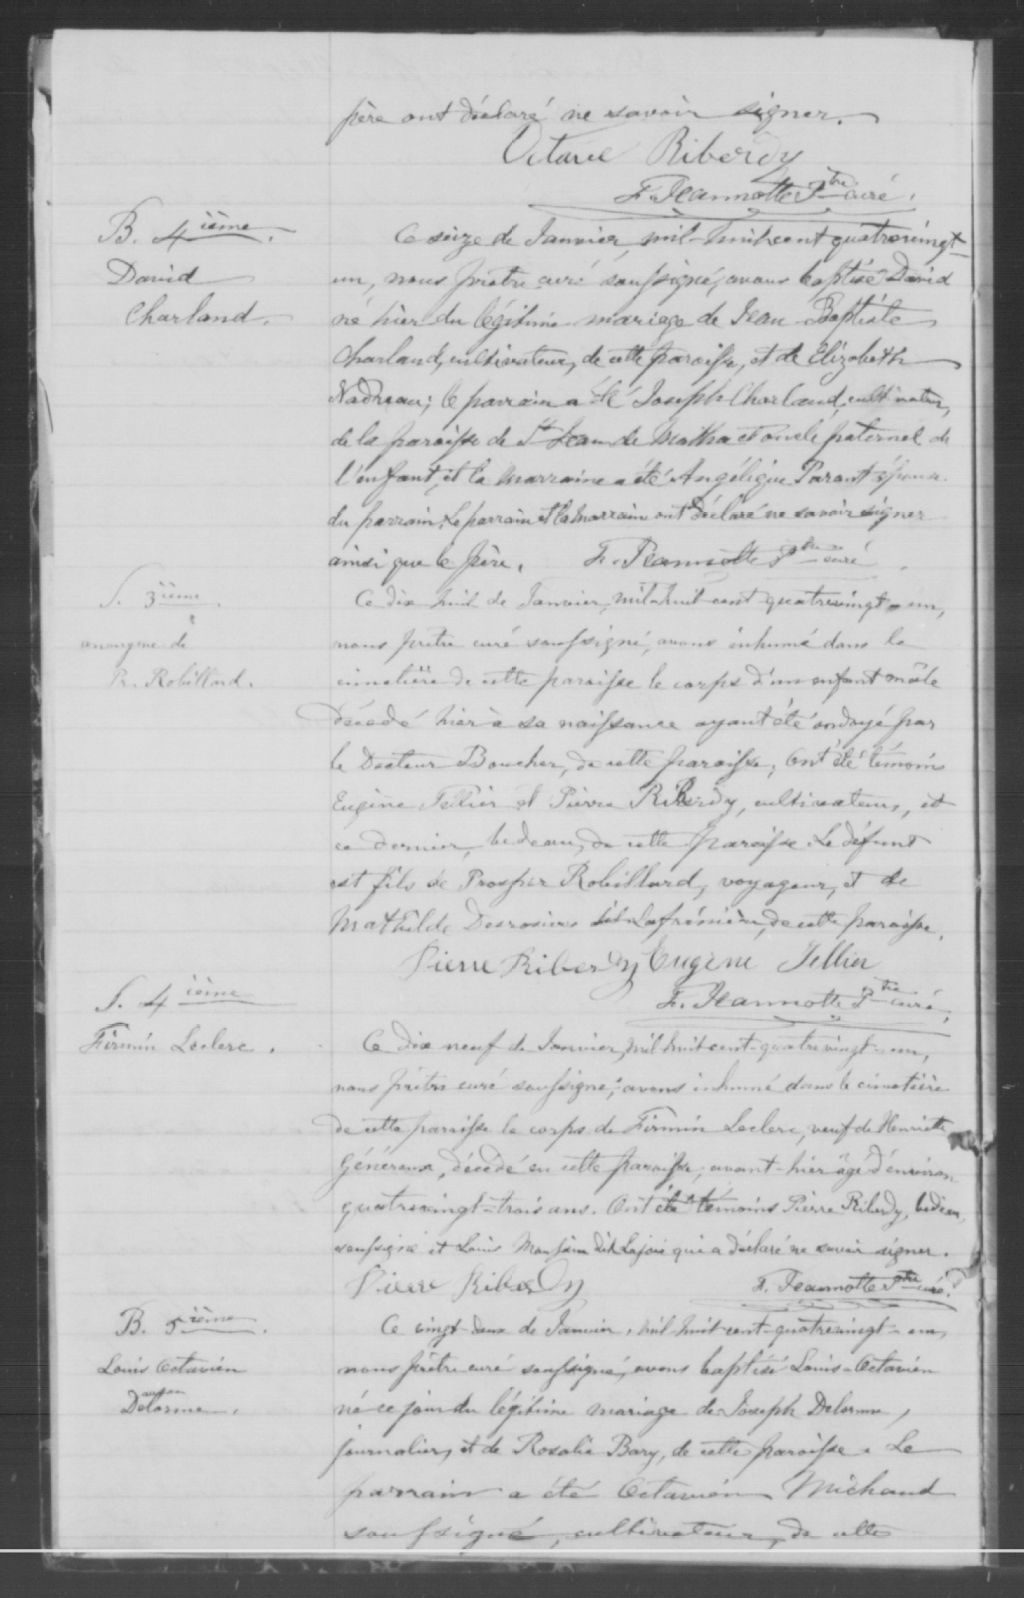 père ont déclaré ne savoir signer.
Octave Riberdy
F. Jeannotte Ptre curé.
B. 4ième.
David
Charland.
Ce seize de Janvier, mil-huit cent quatrevingt-
un, nous prêtre curé soussigné, avons baptisé David
né hier du légitime mariage de Jean-Baptiste
Charland, cultivateur, de cette paroisse, et de Elizabeth
Nadreau; le parrain a été Joseph Charland, cultivateur,
de la paroisse de St Jean de Matha et oncle paternel de
l'enfant, et la marraine a été Angélique Parant épouse
du parrain. Le parrain et la marraine ont déclaré ne savoir signer
ainsi que le père. F. Jeannotte Ptre curé
S. 3ième.
anonyme de
Pr. Robillard.
Ce dix-huit de Janvier, mil-huit cent quatrevingt-un,
nous prêtre curé soussigné, avons inhumé dans le
cimetière de cette paroisse le corps d'un enfant mâle
décédé hier à sa naissance ayant été ondoyé par
le Docteur Boucher, de cette paroisse; Ont été témoins
Eugène Tellier et Pierre Riberdy, cultivateurs, et
ce dernier, bedeau, de cette paroisse. Le défunt
est fils de Prosper Robillard, voyageur, et de
Mathilde Desrosiers dit Lafrénière, de cette paroisse.
Pierre Riberdy Eugène Tellier
F. Jeannotte Ptre curé.
S. 4ième
Firmin Leclerc.
Ce dix neuf de Janvier, mil huit cent-quatrevingt-un,
nous prêtre curé soussigné, avons inhumé dans le cimetière
de cette paroisse le corps de Firmin Leclerc, veuf de Henriette
Généreux, décédé en cette paroisse, avant-hier âgé d'environ
quatrevingt-trois ans. Ont été témoins Pierre Riberdy, bedeau,
soussigné et Louis dit Lajoie qui a déclaré ne savoir signer.
Pierre Riberdy F. Jeannotte Ptre curé.
B. 5ième.
Louis Octavien
Delorme.
Ce vingt-deux de Janvier, mil huit cent-quatrevingt-un,
nous prêtre curé soussigné, avons baptisé Louis-Octavien
né ce jour du légitime mariage de Joseph Delorme,
journalier, et de Rosalie Bary, de cette paroisse. Le
parrain a été Octavien Michaud
soussigné, cultivateur, de cette